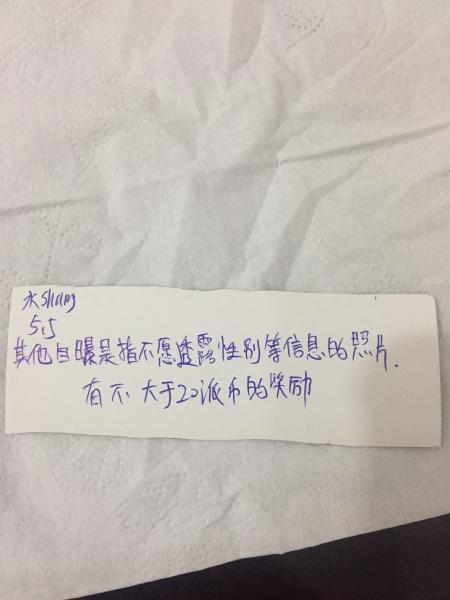 水shang
5.5
其他自曝是指不愿透露性别等信息的照片.
有不大于20派币的奖励